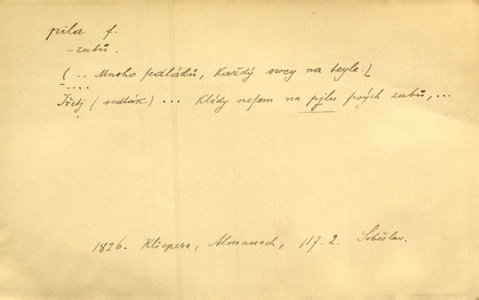 pila f.
- zubů.
( .. Mnoho sedláků, každý svey na teyle )
Třetj (sedlák) ... Klády nesem na pjlu swých zubů, ...
1826. Klicpera, Almanach, 117. 2. Soběslav.